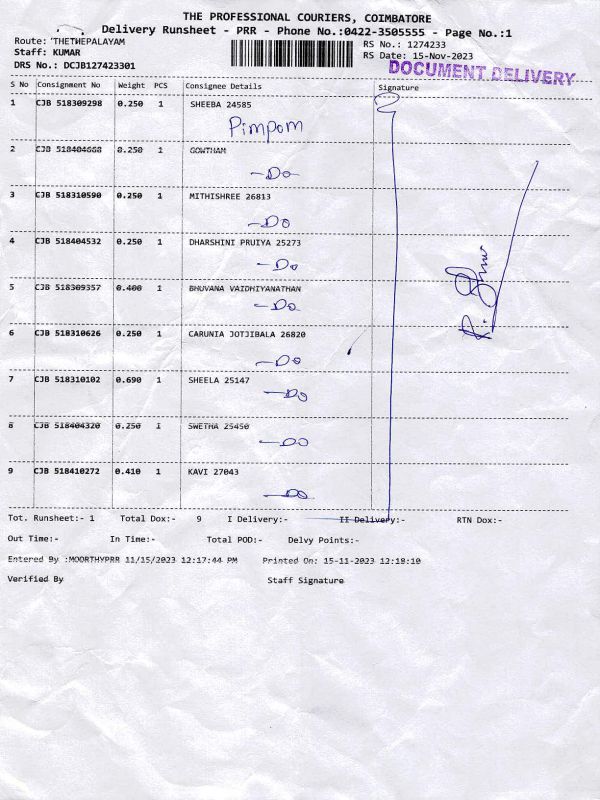 THE PROFESSIONAL COURIERS, COIMBATORE
Delivery Runsheet - PRR - Phone No.:0422-3505555 - Page No.:1
Route: THETHEPALAYAM
RS No.: 1274233
Staff: KUMAR
RS Date: 15-Nov-2023
DRS No.: DCJB127423301
DOCUMENT DELIVERY
S No Consignment No Weight PCS Consignee Details Signature
1 CJB 518309298 0.250 1 SHEEBA 24585
Pimpom
2 CJB 518404668 0.250 1 GOWTHAM
-Do
3 CJB 518310590 0.250 1 MITHISHREE 26813
-Do
4 CJB 518404532 0.250 1 DHARSHINI PRUIYA 25273
-Do
5 CJB 518309357 0.400 1 BHUVANA VAIDHIYANATHAN
-Do
6 CJB 518310626 0.250 1 CARUNIA JOTJIBALA 26820
-Do
7 CJB 518310102 0.690 1 SHEELA 25147
-Do
8 CJB 518404320 0.250 1 SWETHA 25450
-Do
9 CJB 518410272 0.410 1 KAVI 27043
-Do
Tot. Runsheet:- 1 Total Dox:- 9 I Delivery:- II Delivery:- RTN Dox:-
Out Time:- In Time:- Total POD:- Delvy Points:-
Entered By :MOORTHYPRR 11/15/2023 12:17:44 PM Printed On: 15-11-2023 12:18:10
Verified By Staff Signature